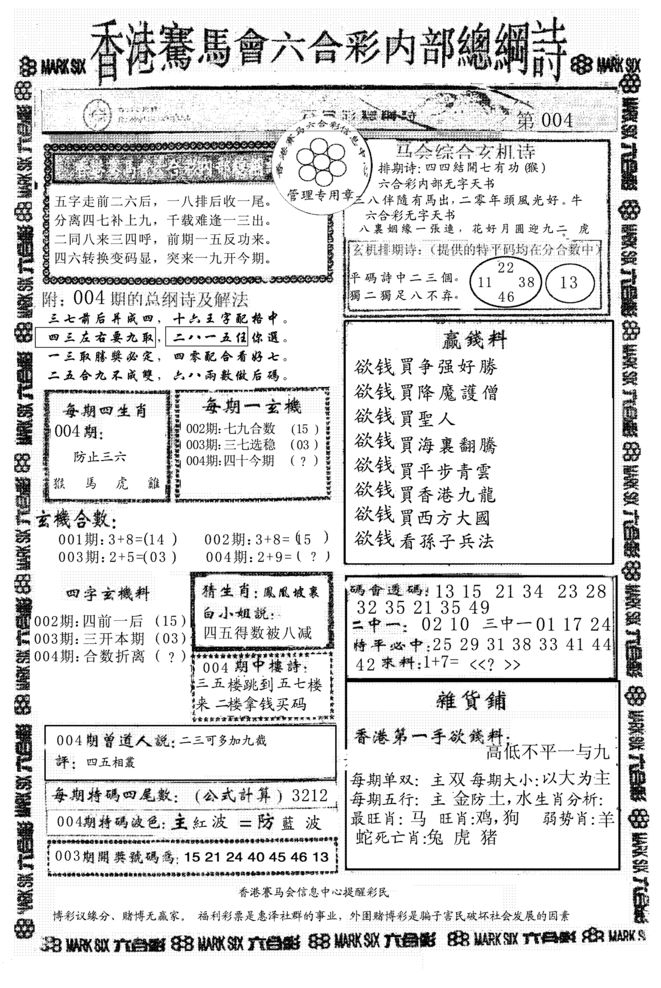 香港騫馬會六合彩内部總綱詩
MARK SIX
MARK SIX
第 004
香港赛马六合彩信息中心
管理专用章
五字走前二六后，一八排后收一尾。
分离四七补上九，千载难逢一三出。
二同八来三四呼，前期一五反功来。
四六转换变码显，突来一九开今期。
马会综合玄机诗
排期诗:四四結開七有功(猴)
六合彩内部无字天书
三八伴隨有馬出,二零年頭風光好。牛
六合彩无字天书
八裏姻緣一張連，花好月圓迎九二 虎
玄机排期诗:（提供的特平码均在分合数中）
平碼詩中二三個。
獨二獨足八不弃。
22
11 38
46
13
附: 004 期的总纲诗及解法
三七前后并成四，十六王字配格中。
四三左右要九取，二八一五任你選。
一三取勝獎必定，四零配合看好七。
二五合九不成雙，六八兩數做后碼。
每期四生肖
004期:
防止三六
猴 馬 虎 雞
每期一玄機
002期:七九合数 (15)
003期:三七选稳 (03)
004期:四十今期 (?)
赢錢料
欲钱買争强好勝
欲钱買降魔護僧
欲钱買聖人
欲钱買海裏翻騰
欲钱買平步青雲
欲钱買香港九龍
欲钱買西方大國
欲钱看孫子兵法
玄機合數:
001期:3+8=(14) 002期:3+8=(15)
003期:2+5=(03) 004期:2+9=(?)
四字玄機料
002期:四前一后 (15)
003期:三开本期 (03)
004期:合数折离 (?)
猜生肖:鳳凰坡裏
白小姐説:
四五得数被八减
004 期中樓詩:
三五楼跳到五七楼
来 二楼拿钱买码
碼會透碼:13 15 21 34 23 28
32 35 21 35 49
二中一: 02 10 三中一01 17 24
特平必中:25 29 31 38 33 41 44
42 來料:1+7= <<? >>
雜貨鋪
香港第一手欲錢料:
高低不平一与九
每期单双: 主双 每期大小:以大为主
每期五行: 主 金防土,水生肖分析:
最旺肖: 马 旺肖:鸡,狗 弱势肖:羊
蛇死亡肖:兔 虎 猪
004期曾道人説:二三可多加九截
評: 四五相叢
每期特碼四尾數: (公式計算) 3212
004期特碼波色:主紅波 =防藍 波
003期開獎號碼悉:15 21 24 40 45 46 13
香港賽马会信息中心提醒彩民
博彩议缘分、赌博无赢家， 福利彩票是惠泽社群的事业，外围赌博彩是骗子害民破坏社会发展的因素
MARK SIX 六合彩 MARK SIX 六合彩 MARK SIX 六合彩 MARK SIX 六合彩 MARK S